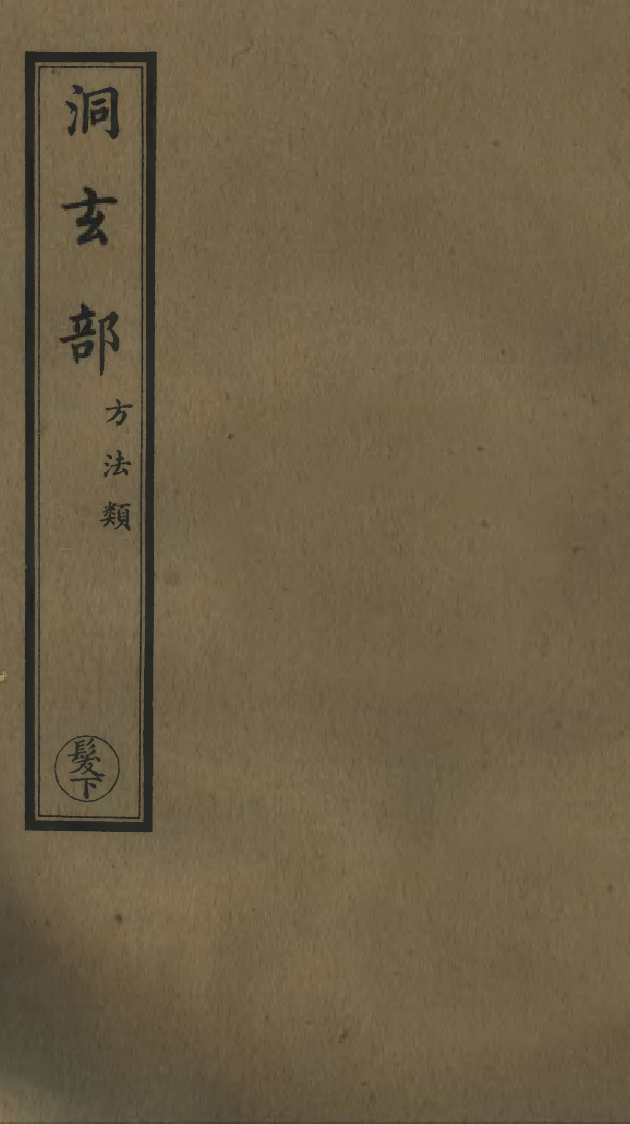 洞玄部
方法類
髮下